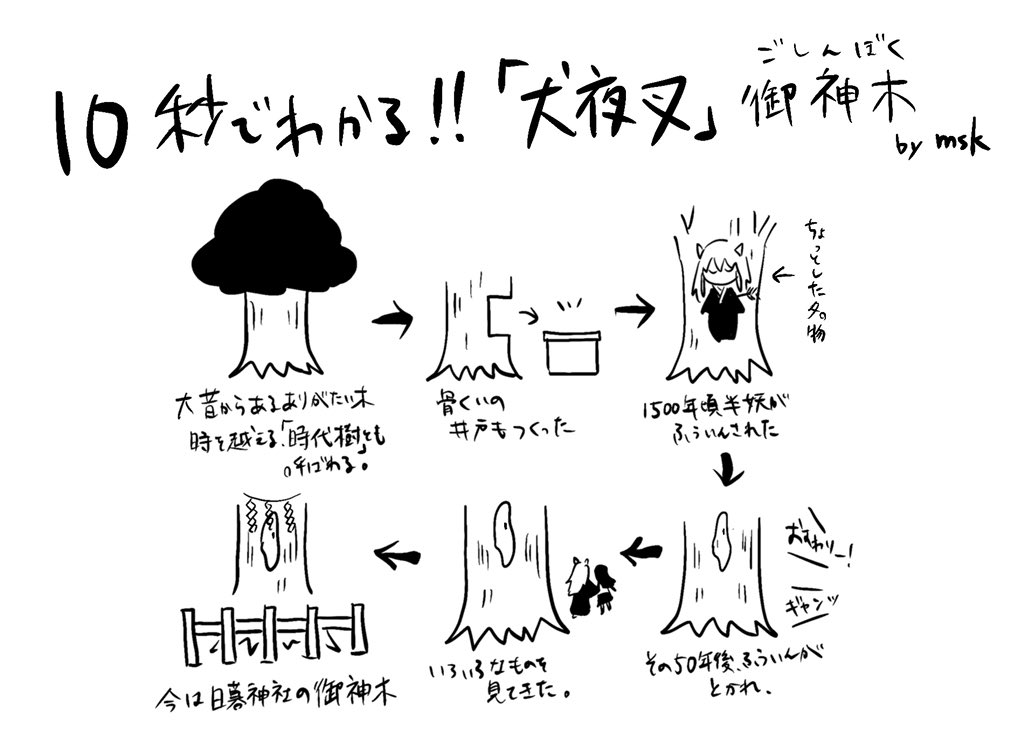 ごしんぼく
10秒でわかる!!「犬夜叉」御神木
by msk
大昔からあるありがたい木
時を越える、「時代樹」とも
呼ばれる。
骨くいの
井戸もつくった
ちょっとした夕。物
1500年頃半妖が
ふういんされた
おすわりー!
ギャンッ
その50年後、ふういんが
とかれ、
いろいろなものを
見てきた。
今は日暮神社の御神木